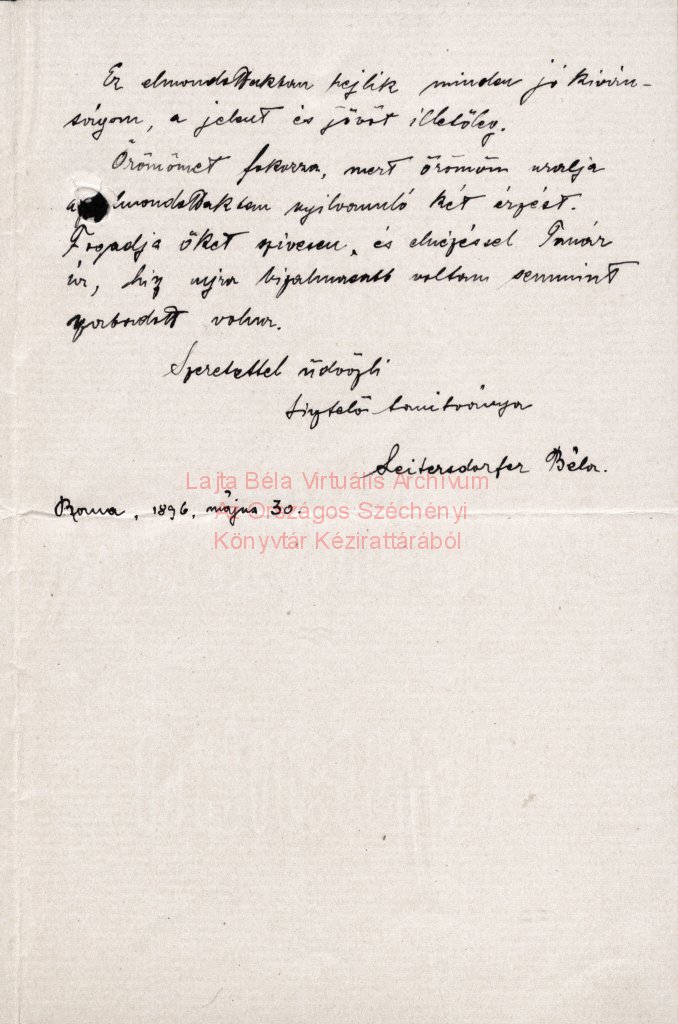 Ez elmondottakban rejlik minden jó kiván-
ságom, a jelent és jövőt illetőleg.
Örömömet fokozza, mert örömöm uralja
elmondottakban nyilvánuló két érzést.
Fogadja őket szivesen, és elnézéssel Tanár
úr, hisz ujra bizalmasabb voltam semmint
szabadott volna.
Szeretettel üdvözli
tisztelő tanitványa
Leitersdorfer Béla.
Roma, 1896, május 30.
Lajta Béla Virtuális Archívum
Az Országos Széchényi
Könyvtár Kézirattárából